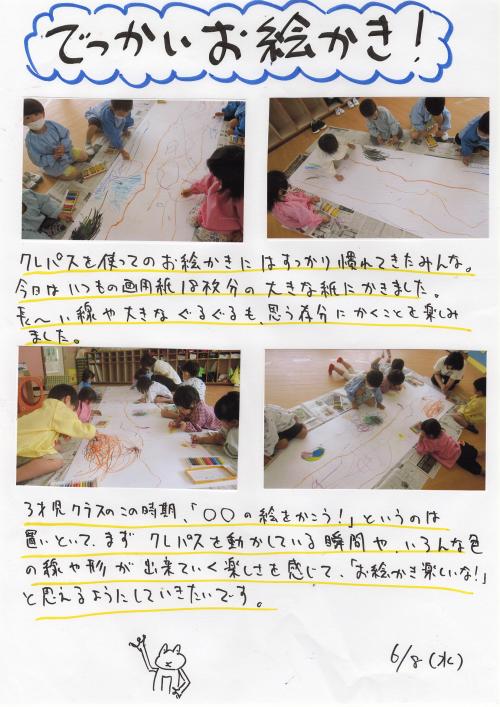 でっかいお絵かき!
クレパスを使ってのお絵かきにはすっかり慣れてきたみんな。
今日はいつもの画用紙18枚分の大きな紙にかきました。
長〜い線や大きなぐるぐるも、思う存分にかくことを楽しみ
ました。
3才児クラスのこの時期、「〇〇の絵をかこう!」というのは
置いといて、まず クレパスを動かしている瞬間や、いろんな色
の線や形が出来ていく楽しさを感じて、「お絵かき楽しいな!」
と思えるようにしていきたいです。
6/8(水)